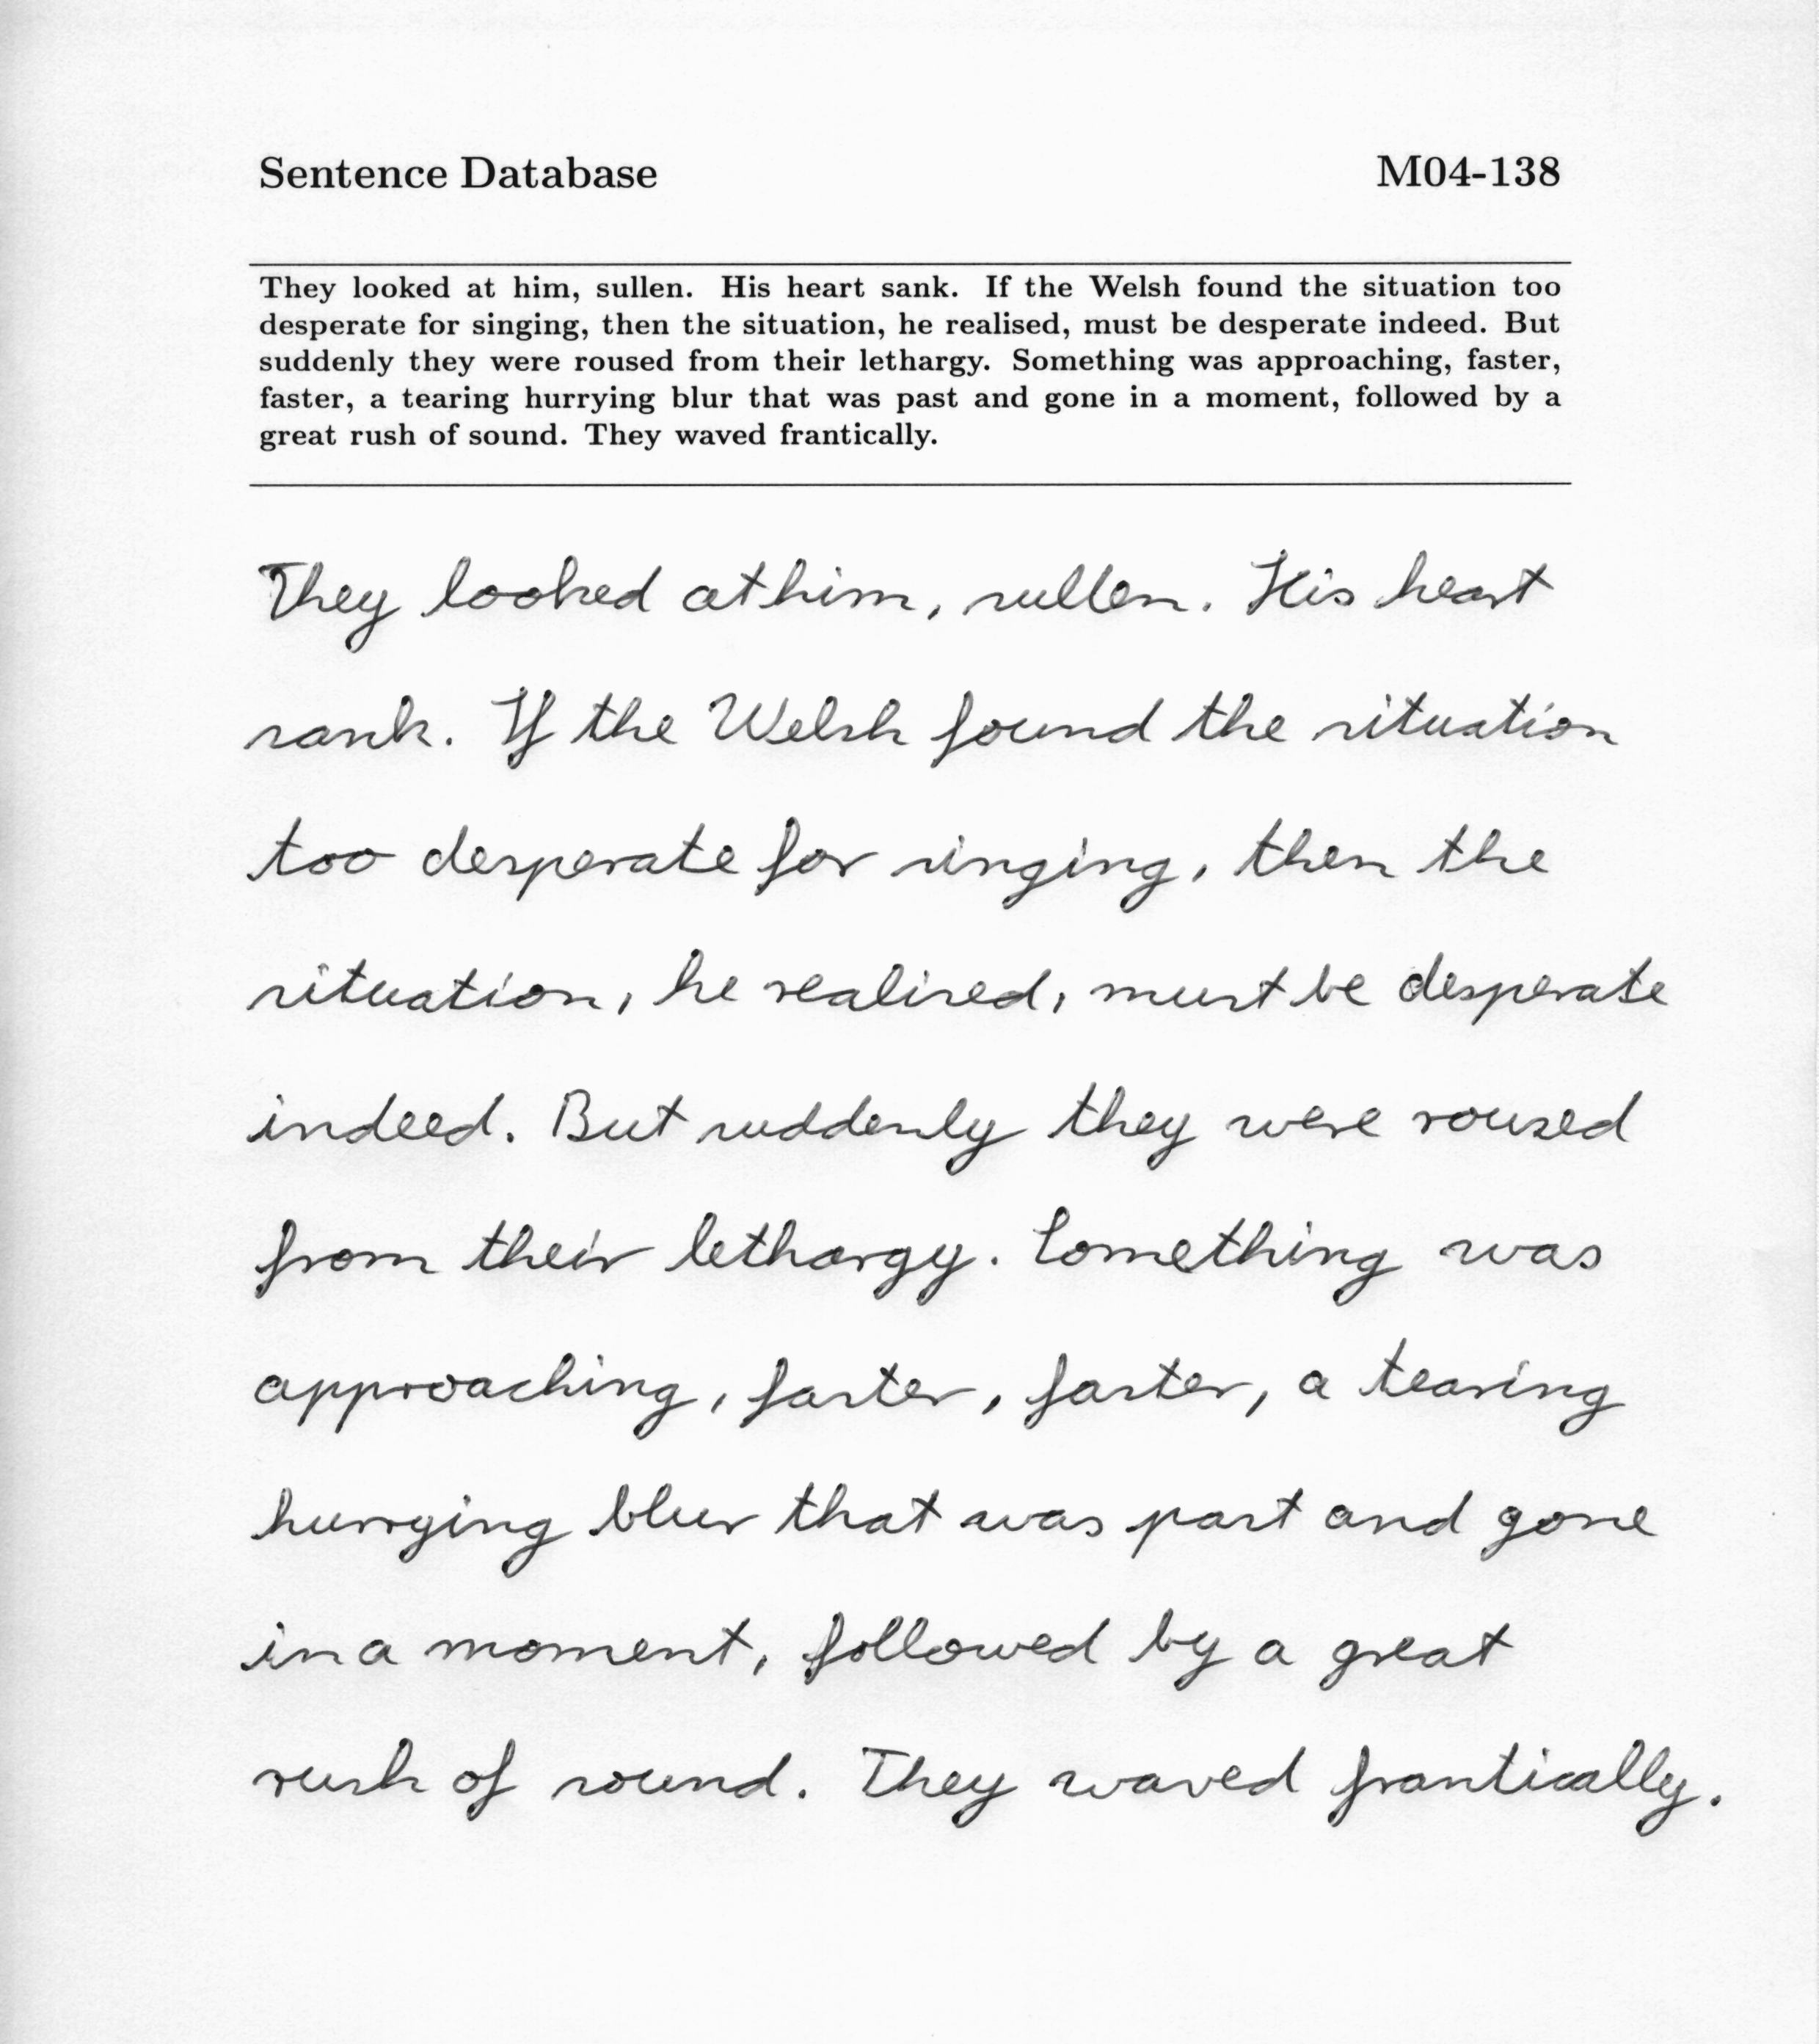 Sentence Database M04-138
They looked at him, sullen. His heart sank. If the Welsh found the situation too
desperate for singing, then the situation, he realised, must be desperate indeed. But
suddenly they were roused from their lethargy. Something was approaching, faster,
faster, a tearing hurrying blur that was past and gone in a moment, followed by a
great rush of sound. They waved frantically.
They looked at him, sullen. His heart
sank. If the Welsh found the situation
too desperate for singing, then the
situation, he realised, must be desperate
indeed. But suddenly they were roused
from their lethargy. Something was
approaching, faster, faster, a tearing
hurrying blur that was past and gone
in a moment, followed by a great
rush of sound. They waved frantically.